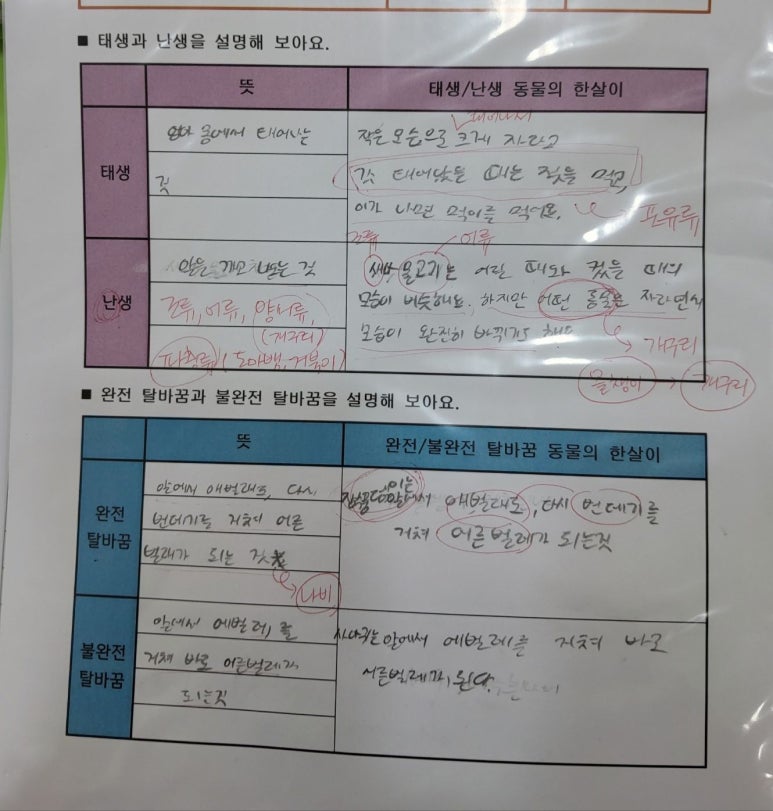 ■ 태생과 난생을 설명해 보아요.
뜻
태생/난생 동물의 한살이
태생
엄마 몸에서 태어나는
것
태어나서
작은 모습으로 크게 자라고
갓 태어났을 때는 젖을 먹고,
이가 나면 먹이를 먹어요.
포유류
난생
알을 깨고 나오는 것
조류, 어류, 양서류,
(개구리)
파충류(도마뱀, 거북이)
조류
어류
새와 물고기는 어린 때와 컸을 때의
모습이 비슷해요. 하지만 어떤 동물은 자라면서
모습이 완전히 바뀌기도 해요
개구리
올챙이 → 개구리
■ 완전 탈바꿈과 불완전 탈바꿈을 설명해 보아요.
뜻
완전/불완전 탈바꿈 동물의 한살이
완전
탈바꿈
알에서 애벌래로, 다시
번데기를 거쳐 어른
벌래가 되는 것
나비
알에서 애벌래로, 다시 번데기를
거쳐 어른벌레가 되는것
불완전
탈바꿈
알에서 에벌레를
거쳐 바로 어른벌레가
되는것
사마귀는 알에서 에벌레를 거쳐 바로
어른벌레가 된다.